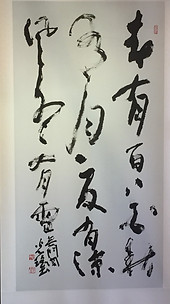 春有百花秋
有月夏有凉
风冬有雪